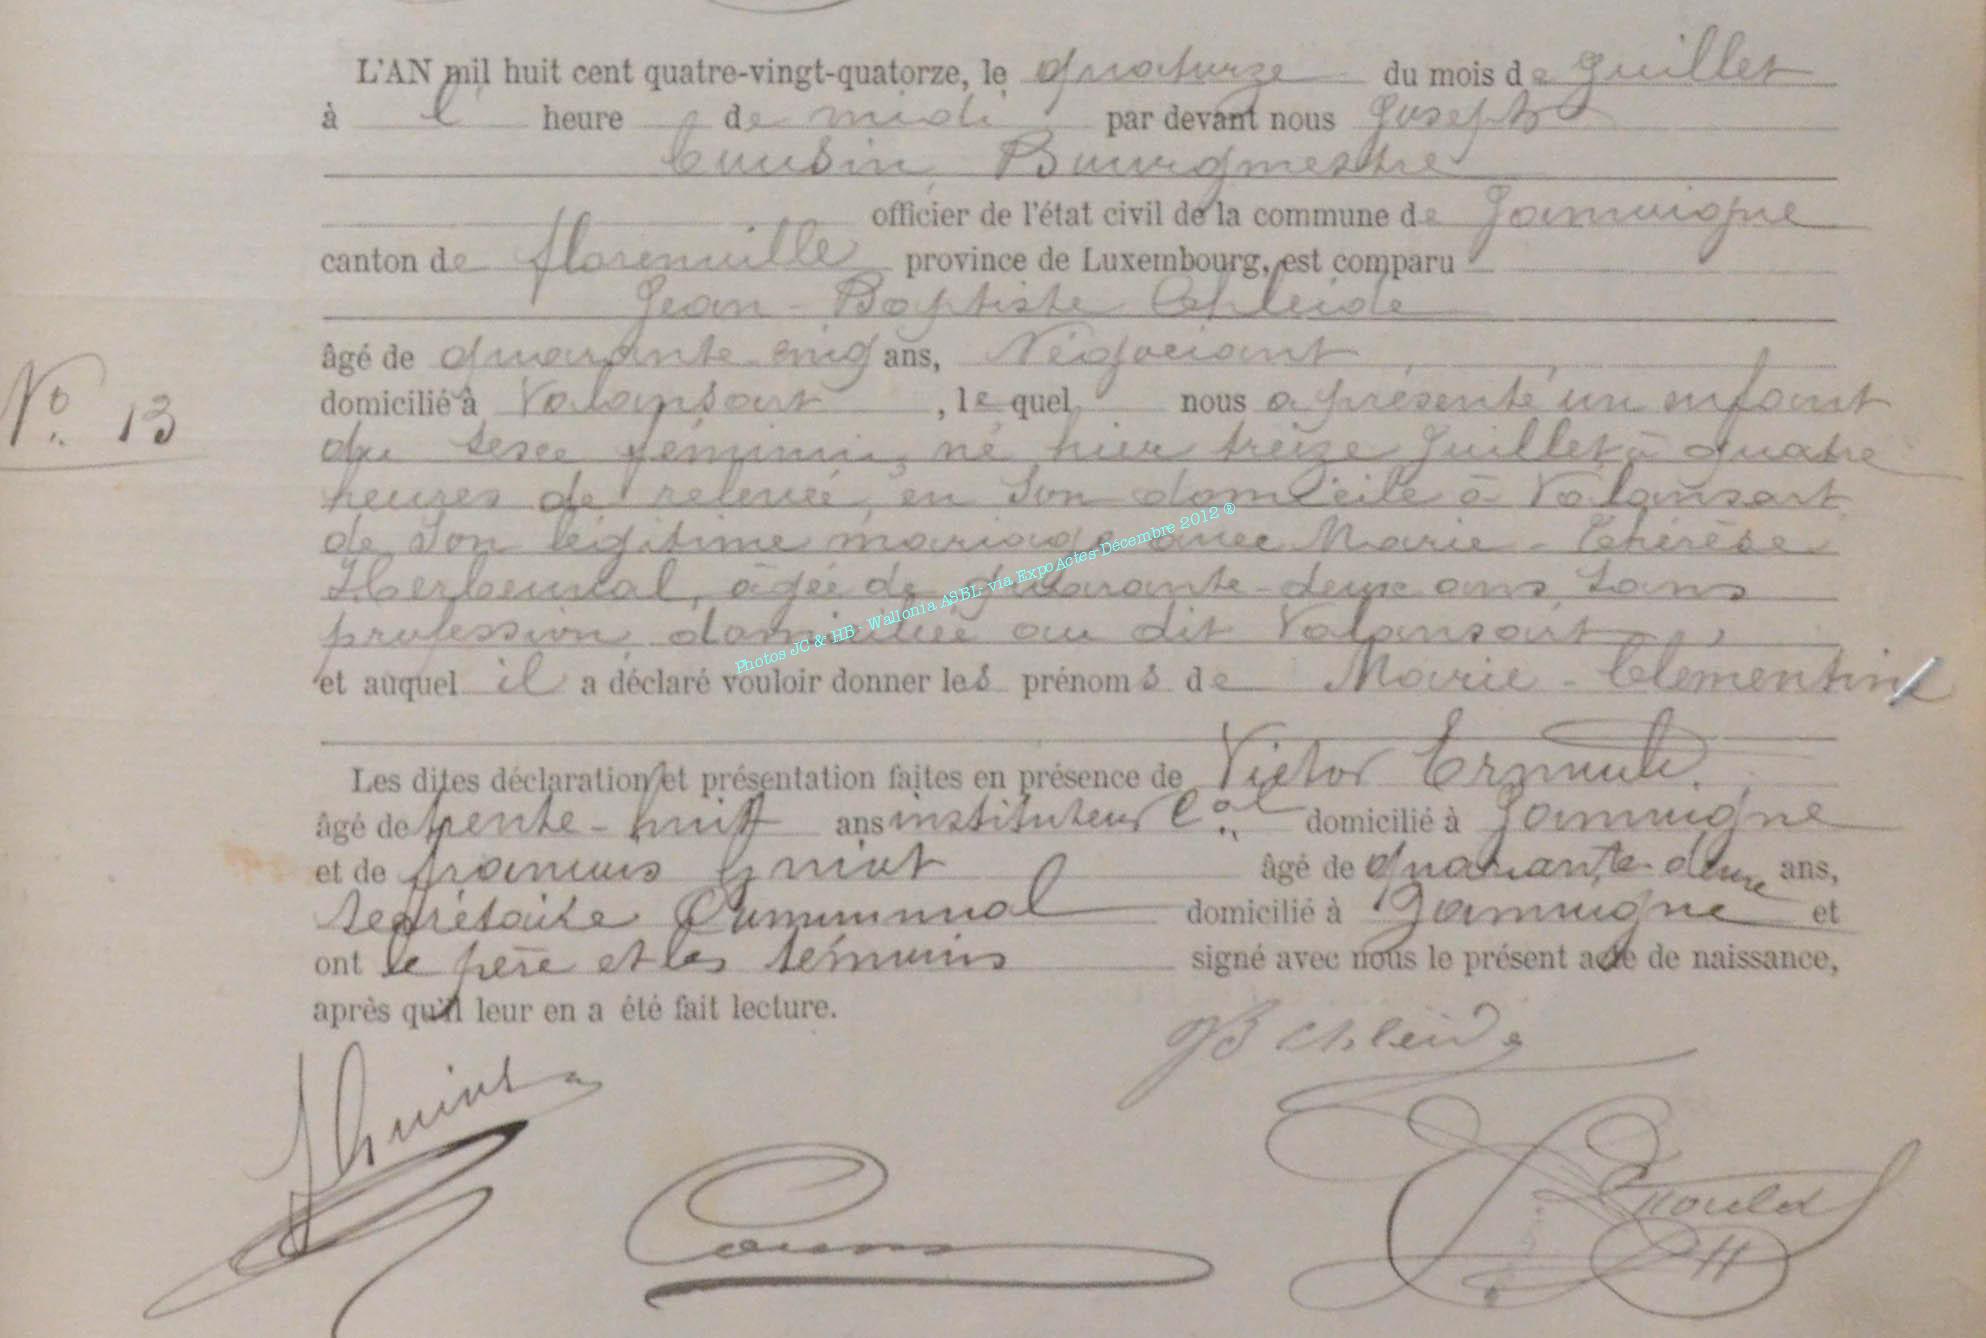 L'AN mil huit cent quatre-vingt-quatorze, le quatorze du mois de Juillet
à l' heure de midi par devant nous Joseph
Cousin, Bourgmestre
officier de l'état civil de la commune de Jamoigne
canton de Florenville province de Luxembourg, est comparu
Jean-Baptiste Chleide
âgé de quarante cinq ans, Négociant
No 13
domicilié à Valansart, lequel nous a présenté un enfant
du sexe féminin, né hier treize Juillet à quatre
heures de relevée, en son domicile à Valansart
de son légitime mariage avec Marie Thérèse
Herbeuval, âgée de quarante-deux ans, sans
profession, domiciliée au dit Valansart
et auquel il a déclaré vouloir donner les prénoms de Marie-Clémentine
Les dites déclaration et présentation faites en présence de Victor
âgé de trente-huit ans instituteur Cal domicilié à Jamoigne
et de François Guiot âgé de quarante-deux ans,
secrétaire Communal domicilié à Jamoigne et
ont le père et les témoins signé avec nous le présent acte de naissance,
après qu'il leur en a été fait lecture.
JB Chleide
Guiot
Cousin
Photos JC & HB - Wallonia ASBL- via ExpoActes-Décembre 2012 ®